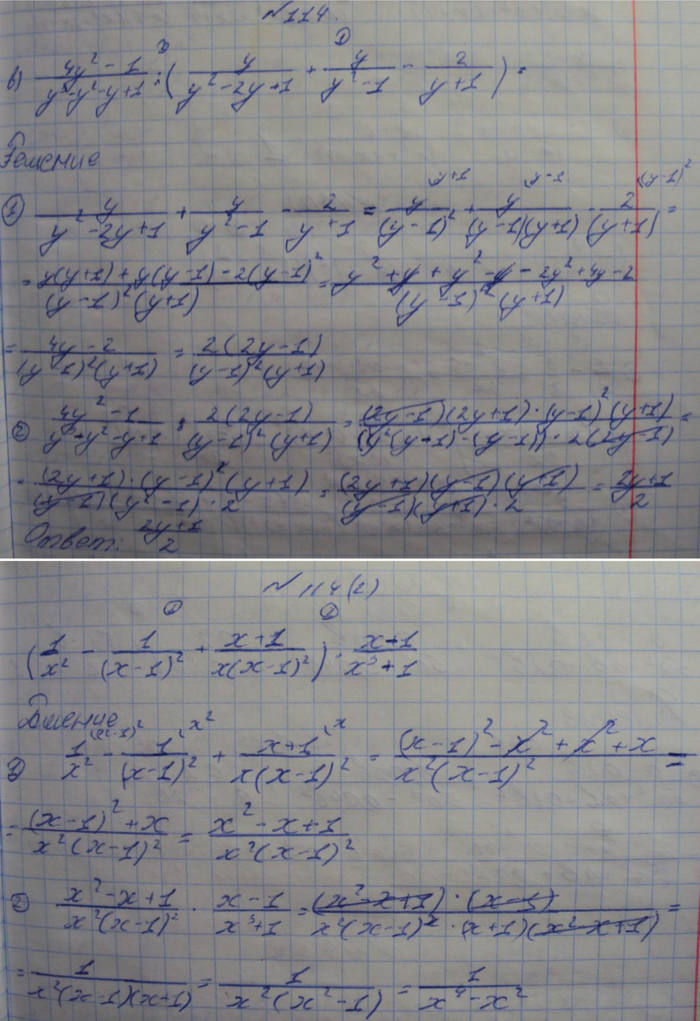 №114.
② ①
в) (4y² - 1)/(y³-y²-y+1) : (y/(y²-2y+1) + y/(y²-1) - 2/(y+1)) =
Решение
① y/(y²-2y+1) + y/(y²-1) - 2/(y+1) = y^(y+1/(y-1)² + y^(y-1/(y-1)(y+1) - 2^(y-1)²/(y+1) =
= (y(y+1)+y(y-1)-2(y-1)²)/((y-1)²(y+1)) = (y²+y+y²-y-2y²+4y-2)/((y-1)²(y+1))
= (4y-2)/((y-1)²(y+1)) = 2(2y-1)/((y-1)²(y+1))
② (4y²-1)/(y³-y²-y+1) : 2(2y-1)/((y-1)²(y+1)) = ((2y-1)(2y+1)·(y-1)²(y+1))/((y²(y+1)-(y-1))·2(2y-1)) =
= ((2y+1)·(y-1)²(y+1))/((y-1)(y²-1)·2) = ((2y+1)(y-1)(y+1))/((y-1)(y+1)·2) = (2y+1)/2
Ответ: (2y+1)/2
№114(2)
① ②
(1/x² - 1/(x-1)² + (x+1)/(x(x-1)²)) · (x+1)/(x³+1)
Решение
① 1^(x-1)²/x² - 1^(x²/(x-1)² + (x+1)^(x/(x(x-1)²) = ((x-1)²-x²+x²+x)/(x²(x-1)²) =
= ((x-1)²+x)/(x²(x-1)²) = (x²-x+1)/(x²(x-1)²)
② (x²-x+1)/(x²(x-1)²) · (x-1)/(x³+1) = ((x²-x+1)·(x-1))/(x²(x-1)²·(x+1)(x²-x+1)) =
= 1/(x²(x-1)(x+1)) = 1/(x²(x²-1)) = 1/(x⁴-x²)